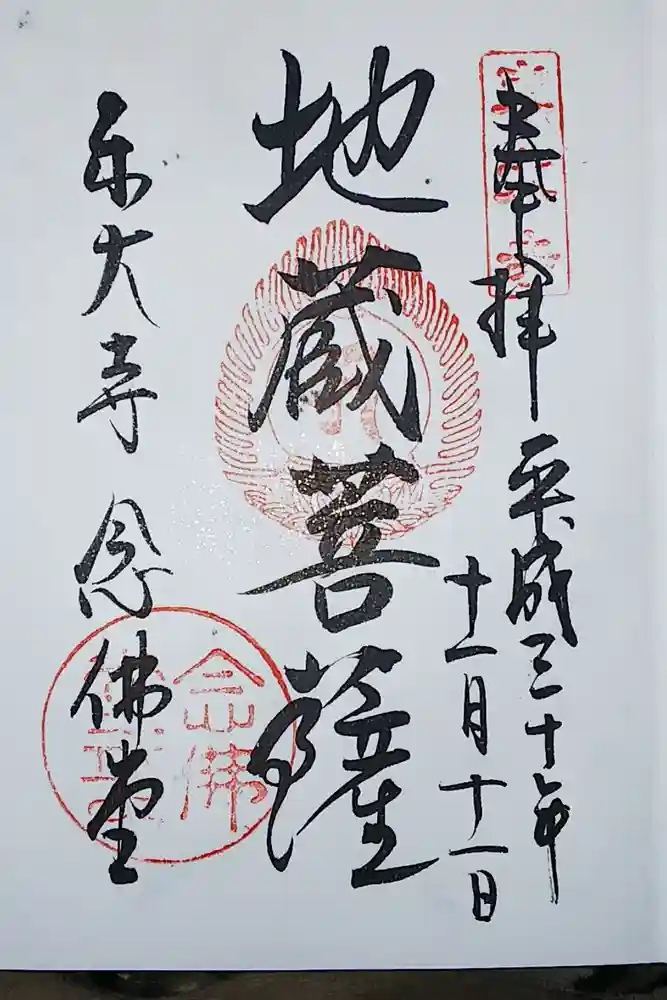 奉拝 平成三十年
十一月十一日
地蔵菩薩
東大寺 念佛堂
念佛